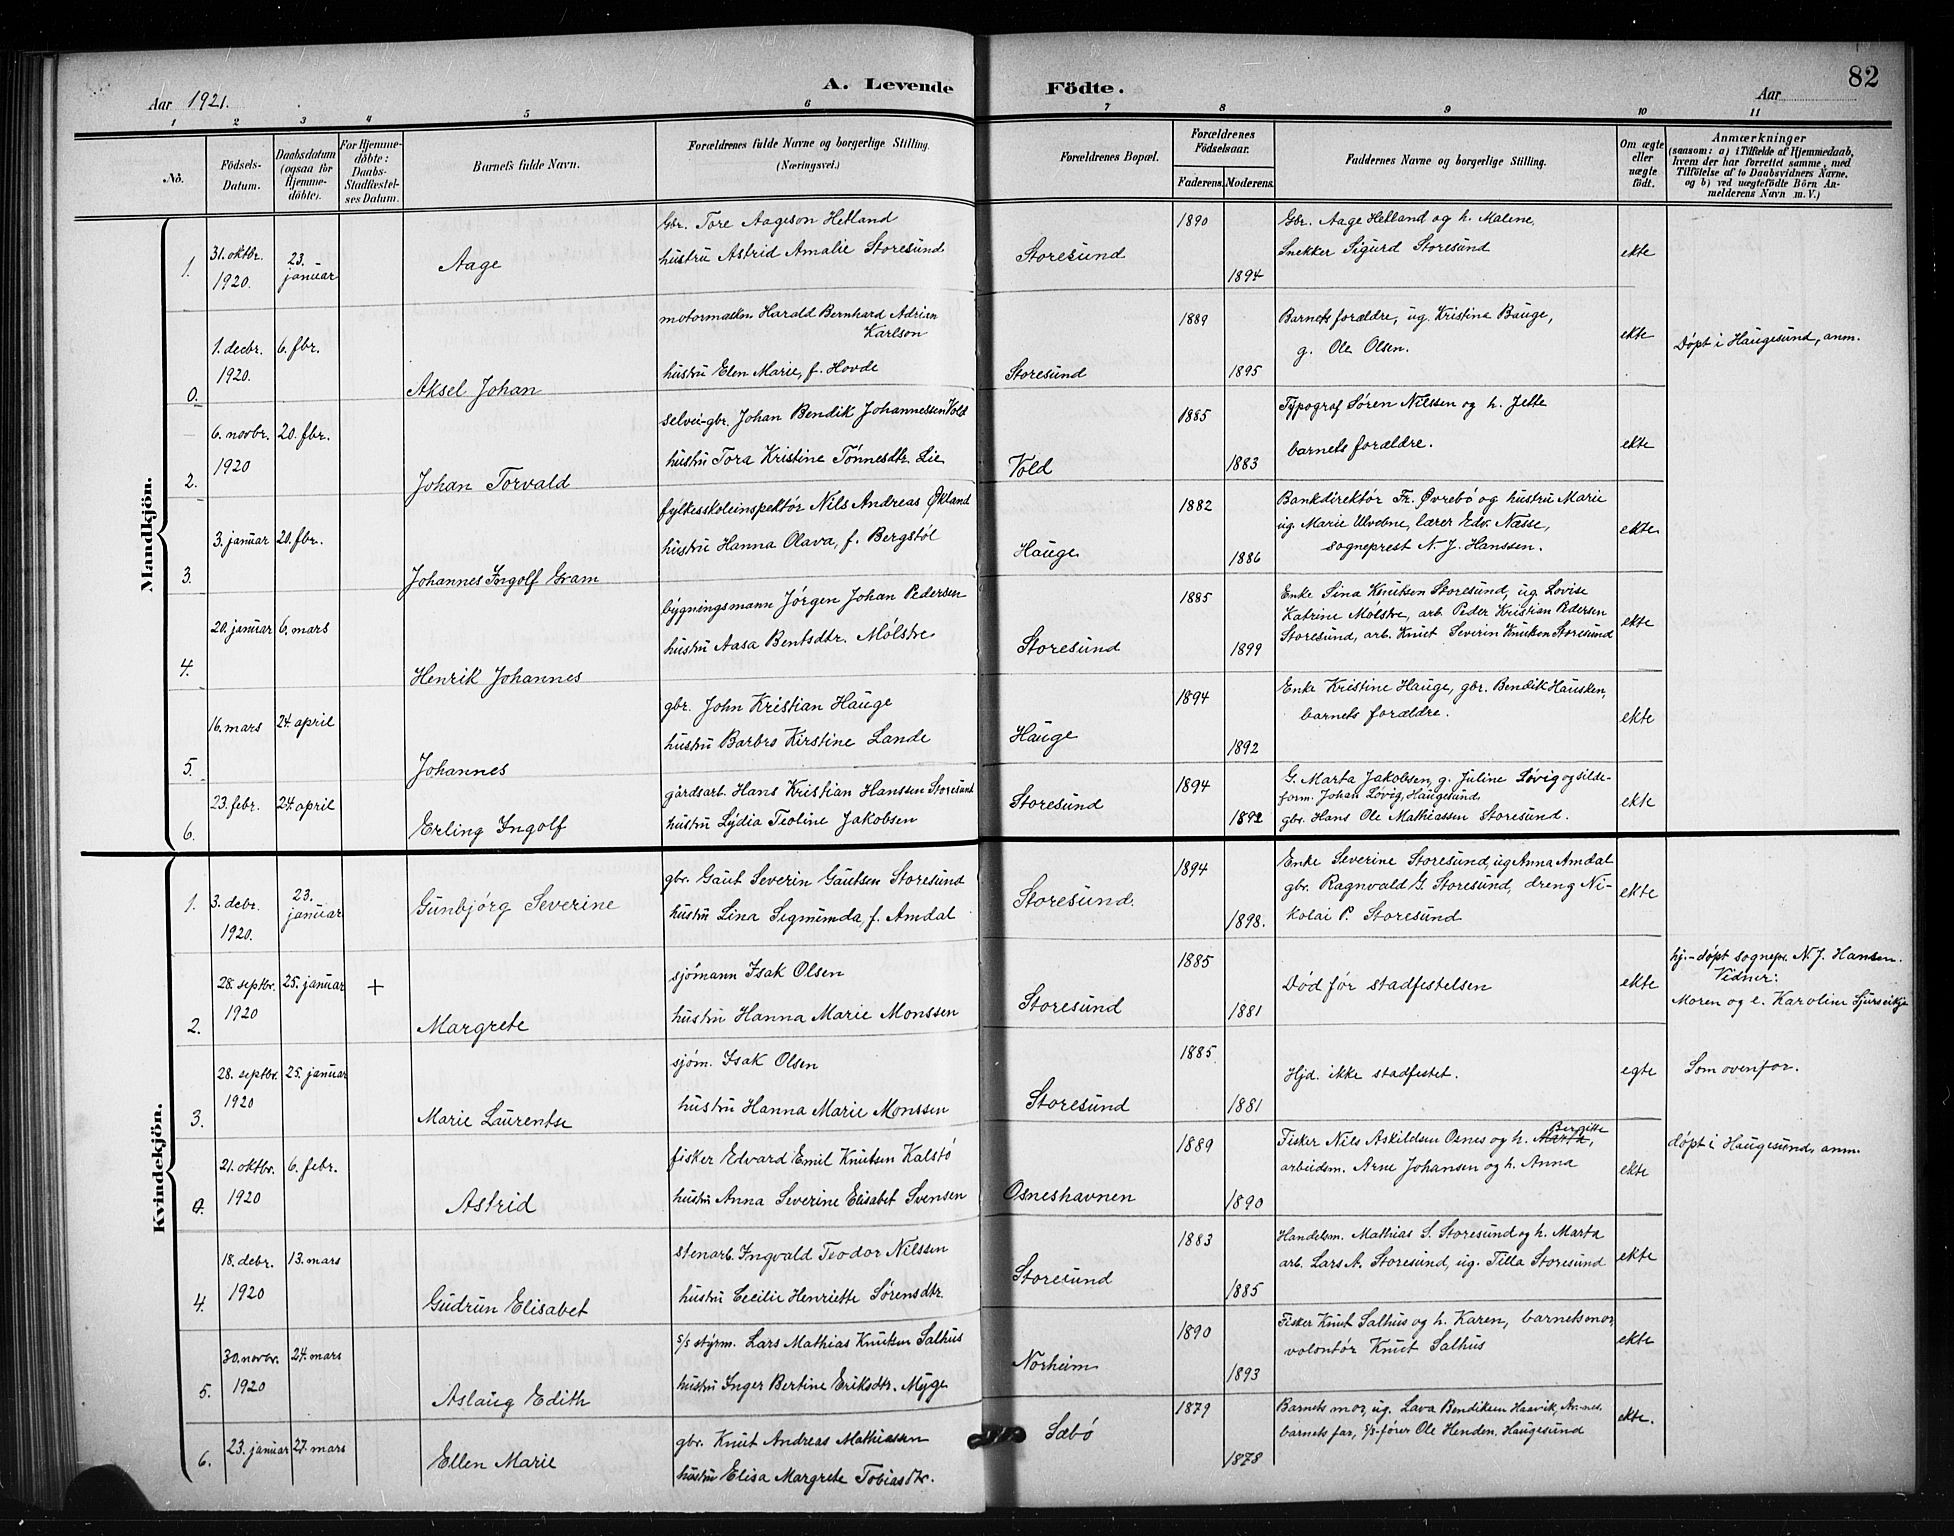 82
A. Levende Födte.
Aar 1921.
Aar
1 2 3 4 5 6 7 8 9 10 11
No.
Födsels-Datum.
Daabsdatum (ogsaa for Hjemme-döbte).
For Hjemme-döbte: Daabs-Stadfæstel-ses Datum.
Barnets fulde Navn.
Forældrenes fulde Navne og borgerlige Stilling. (Næringsvei.)
Forældrenes Bopæl.
Forældrenes Födselsaar.
Faderens. Moderens.
Faddernes Navne og borgerlige Stilling.
Om ægte eller uægte födt.
Anmærkninger
(saasom: a) i Tilfælde af Hjemmedaab,
hvem der har forrettet samme, med
Tilföielse af to Daabsvidners Navne.
og b) ved uægtefödte Börn An-
melderens Navn m. V.)
Mandkjön.
1. 31. oktbr. 1920. 23. januar Aage
Gbr. Tore Aageson Hetland
hustru Astrid Amalie Storesund
Storesund 1890 1894
Gbr. Aage Hetland og h. Malene,
Snekker Sigurd Storesund
ekte
0. 1. decbr. 1920. 6. fbr. Aksel Johan
motormaskn Harald Bernhard Adrian
Karlson
hustru Elen Marie, f. Hovde
Storesund 1889 1895
Barnets forældre, ug. Kristina Bauge,
g. Ole Olsen.
ekte
Døpt i Haugesund, anm.
2. 6. novbr. 1920 20. fbr. Johan Torvald
selvei-gbr. Johan Bendik Johannessen Vold
hustru Tora Kristine Tønnesdtr. Lie
Vold 1885 1883
Typograf Søren Nilssen og h. Jette
barnets forældre.
ekte
3. 3. januar 20. fbr. Johannes Ingolf Gram
fylkesskoleinspektør Nils Andreas Økland
hustru Hanna Olava, f. Bergstøl
Hauge 1882 1886
Bankdirektør Fr. Øvrebø og hustru Marie
ug. Marie Ulvebne, lærer Edv. Næsse,
sogneprest N. J. Hanssen.
ekte
4. 20. januar 6. mars Henrik Johannes
bygningsmann Jørgen Johan Pedersen
hustru Aasa Bentsdtr. Mølstre
Storesund 1885 1899
Enke Sina Knutsen Storesund, ug. Lovise
Katrine Mølstre, arb. Peder Kristian Pedersen
Storesund, arb. Knut Severin Knutsen Storesund
ekte
5. 16. mars 24. april Johannes
gbr. John Kristian Hauge
hustru Barbro Kirstine Lande
Hauge 1894 1892
Enke Kristine Hauge, gbr. Bendik Hausken,
barnets forældre.
ekte
6. 23. febr. 24. april Erling Ingolf
gårdsarb. Hans Kristian Hanssen Storesund
hustru Lydia Teoline Jakobsen
Storesund 1894 1892
G. Marta Jakobsen, g. Juline Løvig og silde-
form. Johan Løvig, Haugesund.
gbr. Hans Ole Mathiassen Storesund.
ekte
Kvindekjön.
1. 3. debr. 1920. 23. januar Gunbjørg Severine
gbr. Gaut Severin Gautsen Storesund
hustru Lina Segmunda, f. Amdal
Storesund. 1894 1898.
Enke Severine Storesund, ug Anna Amdal
gbr. Ragnvald G. Storesund, dreng Ni-
kolai P. Storesund
ekte
2. 28. septbr. 1920 25. januar + Margrete
sjømann Isak Olsen
hustru Hanna Marie Monssen
Storesund 1885 1881
Død før stadfestelsen
ekte
hj.-døpt sognepr. N. J. Hansen.
Vidner:
Moren og e. Karoline
3. 28. septbr. 1920 25. januar Marie Laurentse
sjøm. Isak Olsen
hustru Hanna Marie Monssen
Storesund 1885. 1881
Hjd. ikke stadfestet.
egte
Som ovenfor.
0. 21. oktbr. 1920 6. febr. Astrid
fisker Edvard Emil Knutsen Kalstø
hustru Anna Severine Elisabet Svensen
Osneshavnen 1889 1890
Fisker Nils Askildsen Osnes og h. Marta, Bergitte
arbeidsm. Arne Johansen og h. Anna
ekte
døpt i Haugesund, anm.
4. 18. debr. 1920 13. mars Gudrun Elisabet
stenarb. Ingvald Teodor Nilssen
hustru Cecilie Henriette Sørensdtr.
Storesund 1883 1885
Handelsm. Mathias S. Storesund og h. Marta
arb. Lars A. Storesund, ug. Tilla Storesund
ekte
5. 30. novbr. 1920 24. mars Aslaug Edith
s/s styrm. Lars Mathias Knutsen Salhus
hustru Inger Bertine Eriksdtr. Myge
Norheim 1890 1893
Fisker Knut Salhus og h. Karen, barnets mor,
volontør Knut Salhus
ekte
6. 23. januar 27. mars Ellen Marie
gbr. Knut Andreas Mathiassen
hustru Elisa Margrete Tobiasdtr.
Sæbø 1879 1878
Barnets mor, ug. Lava Bendiksen Haavik,
barnets far, s/s-fører Ole Henden, Haugesund
ekte.